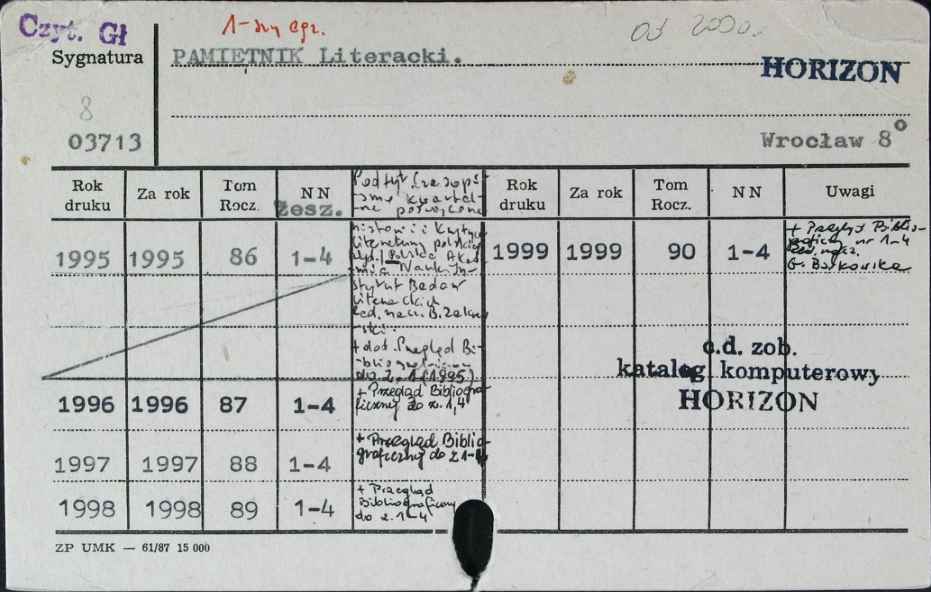 Czyt. Gł
1-szy egz.
od 2000.
Sygnatura
PAMIĘTNIK Literacki.
HORIZON
8
03713
Wrocław 8°
Rok druku
Za rok
Tom Rocz.
NN
Zesz.
Podtyt. Czasopi-
smo kwartal-
ne poświęcone
historii i krytyce
literatury polskiej
Wyd. Polska Aka
demia Nauk. In-
stytut Badań
Literackich
Red. nacz. B. Zakrze
wski.
+ dod. Przegląd Bi-
bliograficzny
do z. 1 (1995)
Rok druku
Za rok
Tom Rocz.
NN
Uwagi
1995 1995 86 1-4
1999 1999 90 1-4
+ Przegląd Biblio-
graficzny nr 1-4
Red. nacz.
G. Borkowska
c.d. zob.
katalog komputerowy
HORIZON
1996 1996 87 1-4
+ Przegląd Bibliogra-
ficzny do z. 1,4
1997 1997 88 1-4
+ Przegląd Biblio-
graficzny do z 1-4
1998 1998 89 1-4
+ Przegląd
Bibliograficzny
do z. 1-4
ZP UMK — 61/87 15 000